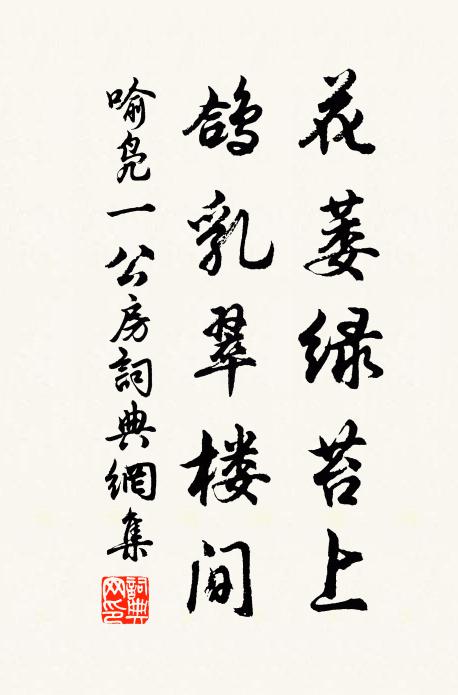 花萎绿苔上
鸽乳翠楼间
喻凫一公房詞典網集
詞典
网印